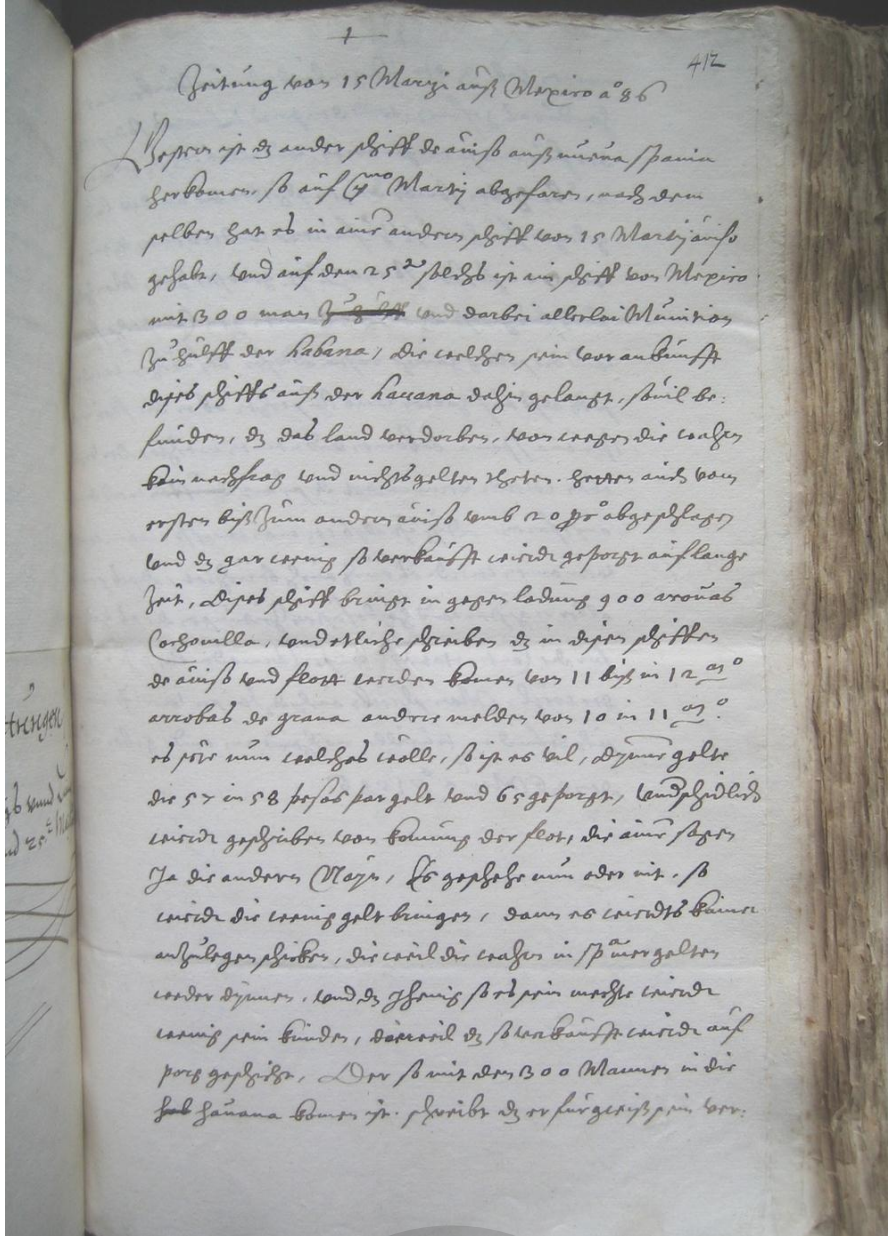 412
Zeitung von 15 Martzi auß Mexico aº 86
Gestern ist dz ander schiff de aviso auß nueva Spania
herkomen, so auf pmo Martzi abgefaren, nach dem
selben hat es in ainē andern schiff von 15 Martzi aviso
gehabt, vnd auf den 25 solchs ist ein schiff von Mexico
mit 300 man vnd darbei allerlai Munition
zu hülff der habana, die welchen sein vor ankunfft
dises schiffs auß der havana dahin gelangt, sovil be:
funden, dz das land verdorben, von wegen die wahrn
kein nachfrag vnd nichts gelten theten. hetten auch vom
ersten biß zum andern aviso vmb 20 pr cº abgeschlagen
vnd dz gar wenig so verkaufft wirdt geporgt auf lange
Zeit, dises schiff bringt in gegen ladung 900 arovas
Cochenilla, vnd etliche schreiben dz in disen schiffen
de aviso vnd flott werden komen von 11 biß in 12 mº
arrobas de grana andere melden von 10 in 11 mº.
es seie nun welches wölle, so ist es vil, dynne gelte
die 57 in 58 pesos par gelt vnd 65 geporgt, vnderschidlich
wirdt geschriben von komung der flot, die ainē sagen
Ja die andern Nayn, Es geschehe nun oder nit, so
wirdt die wenig gelt bringen, dann es wirdts keiner
anzulegen schicken, die weil die wahrn in Spa mer gelten
weder dynnen, vnd dz Jhenig so es sein mechte wirdt
wenig sein künden, dieweil dz so verkaufft wirdt auf
porg geschicht, Der so mit den 300 Mannen in die
havana komen ist. schreibt dz er für gwiß sein ver: